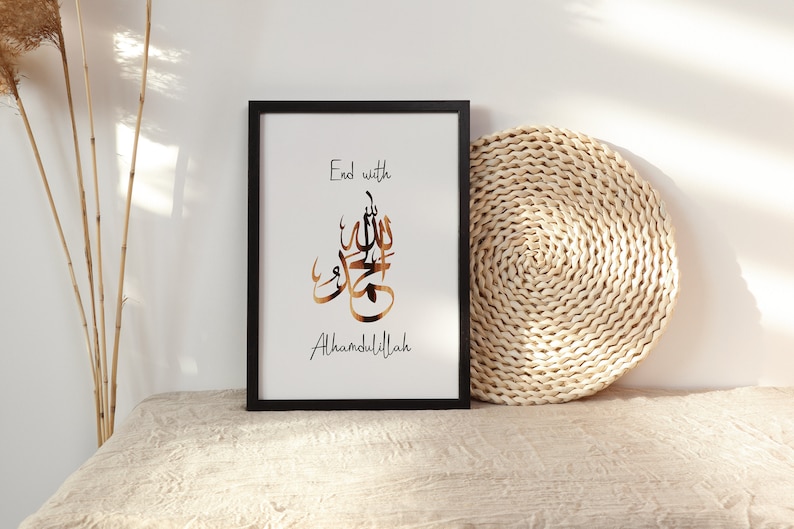 End with
الحمد لله
Alhamdulillah